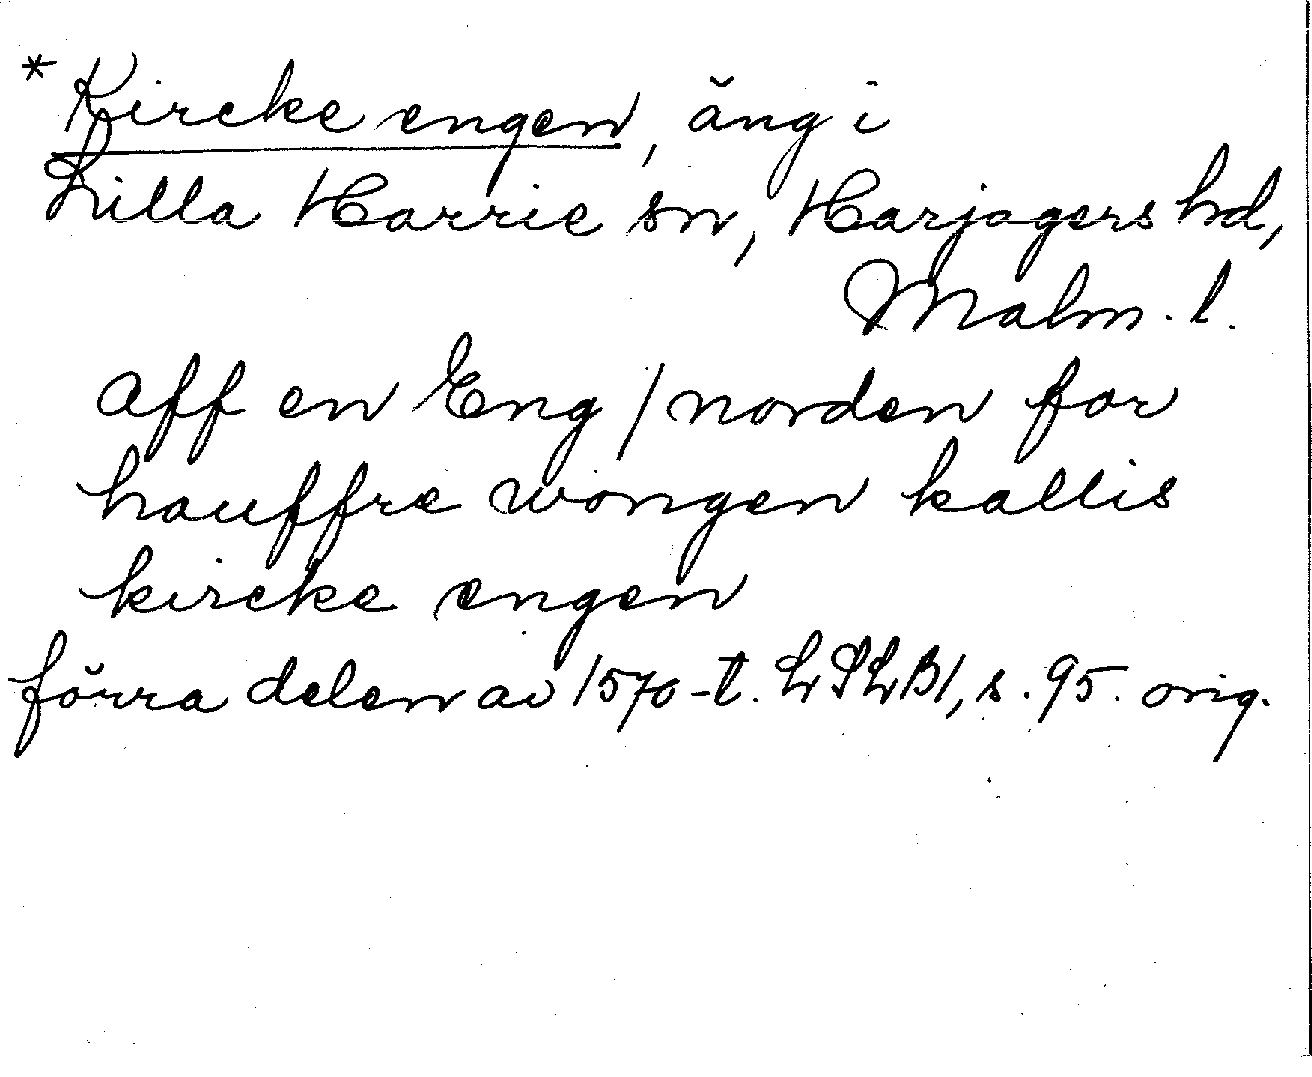 * Kircke engen, äng i
Lilla Harrie sn, Harjagers hd,
Malm. l.
Aff en Eng / norden for
hauffre wongen kallis
kircke engen
förra delen av 1570-t. LSLB1, s. 95. orig.